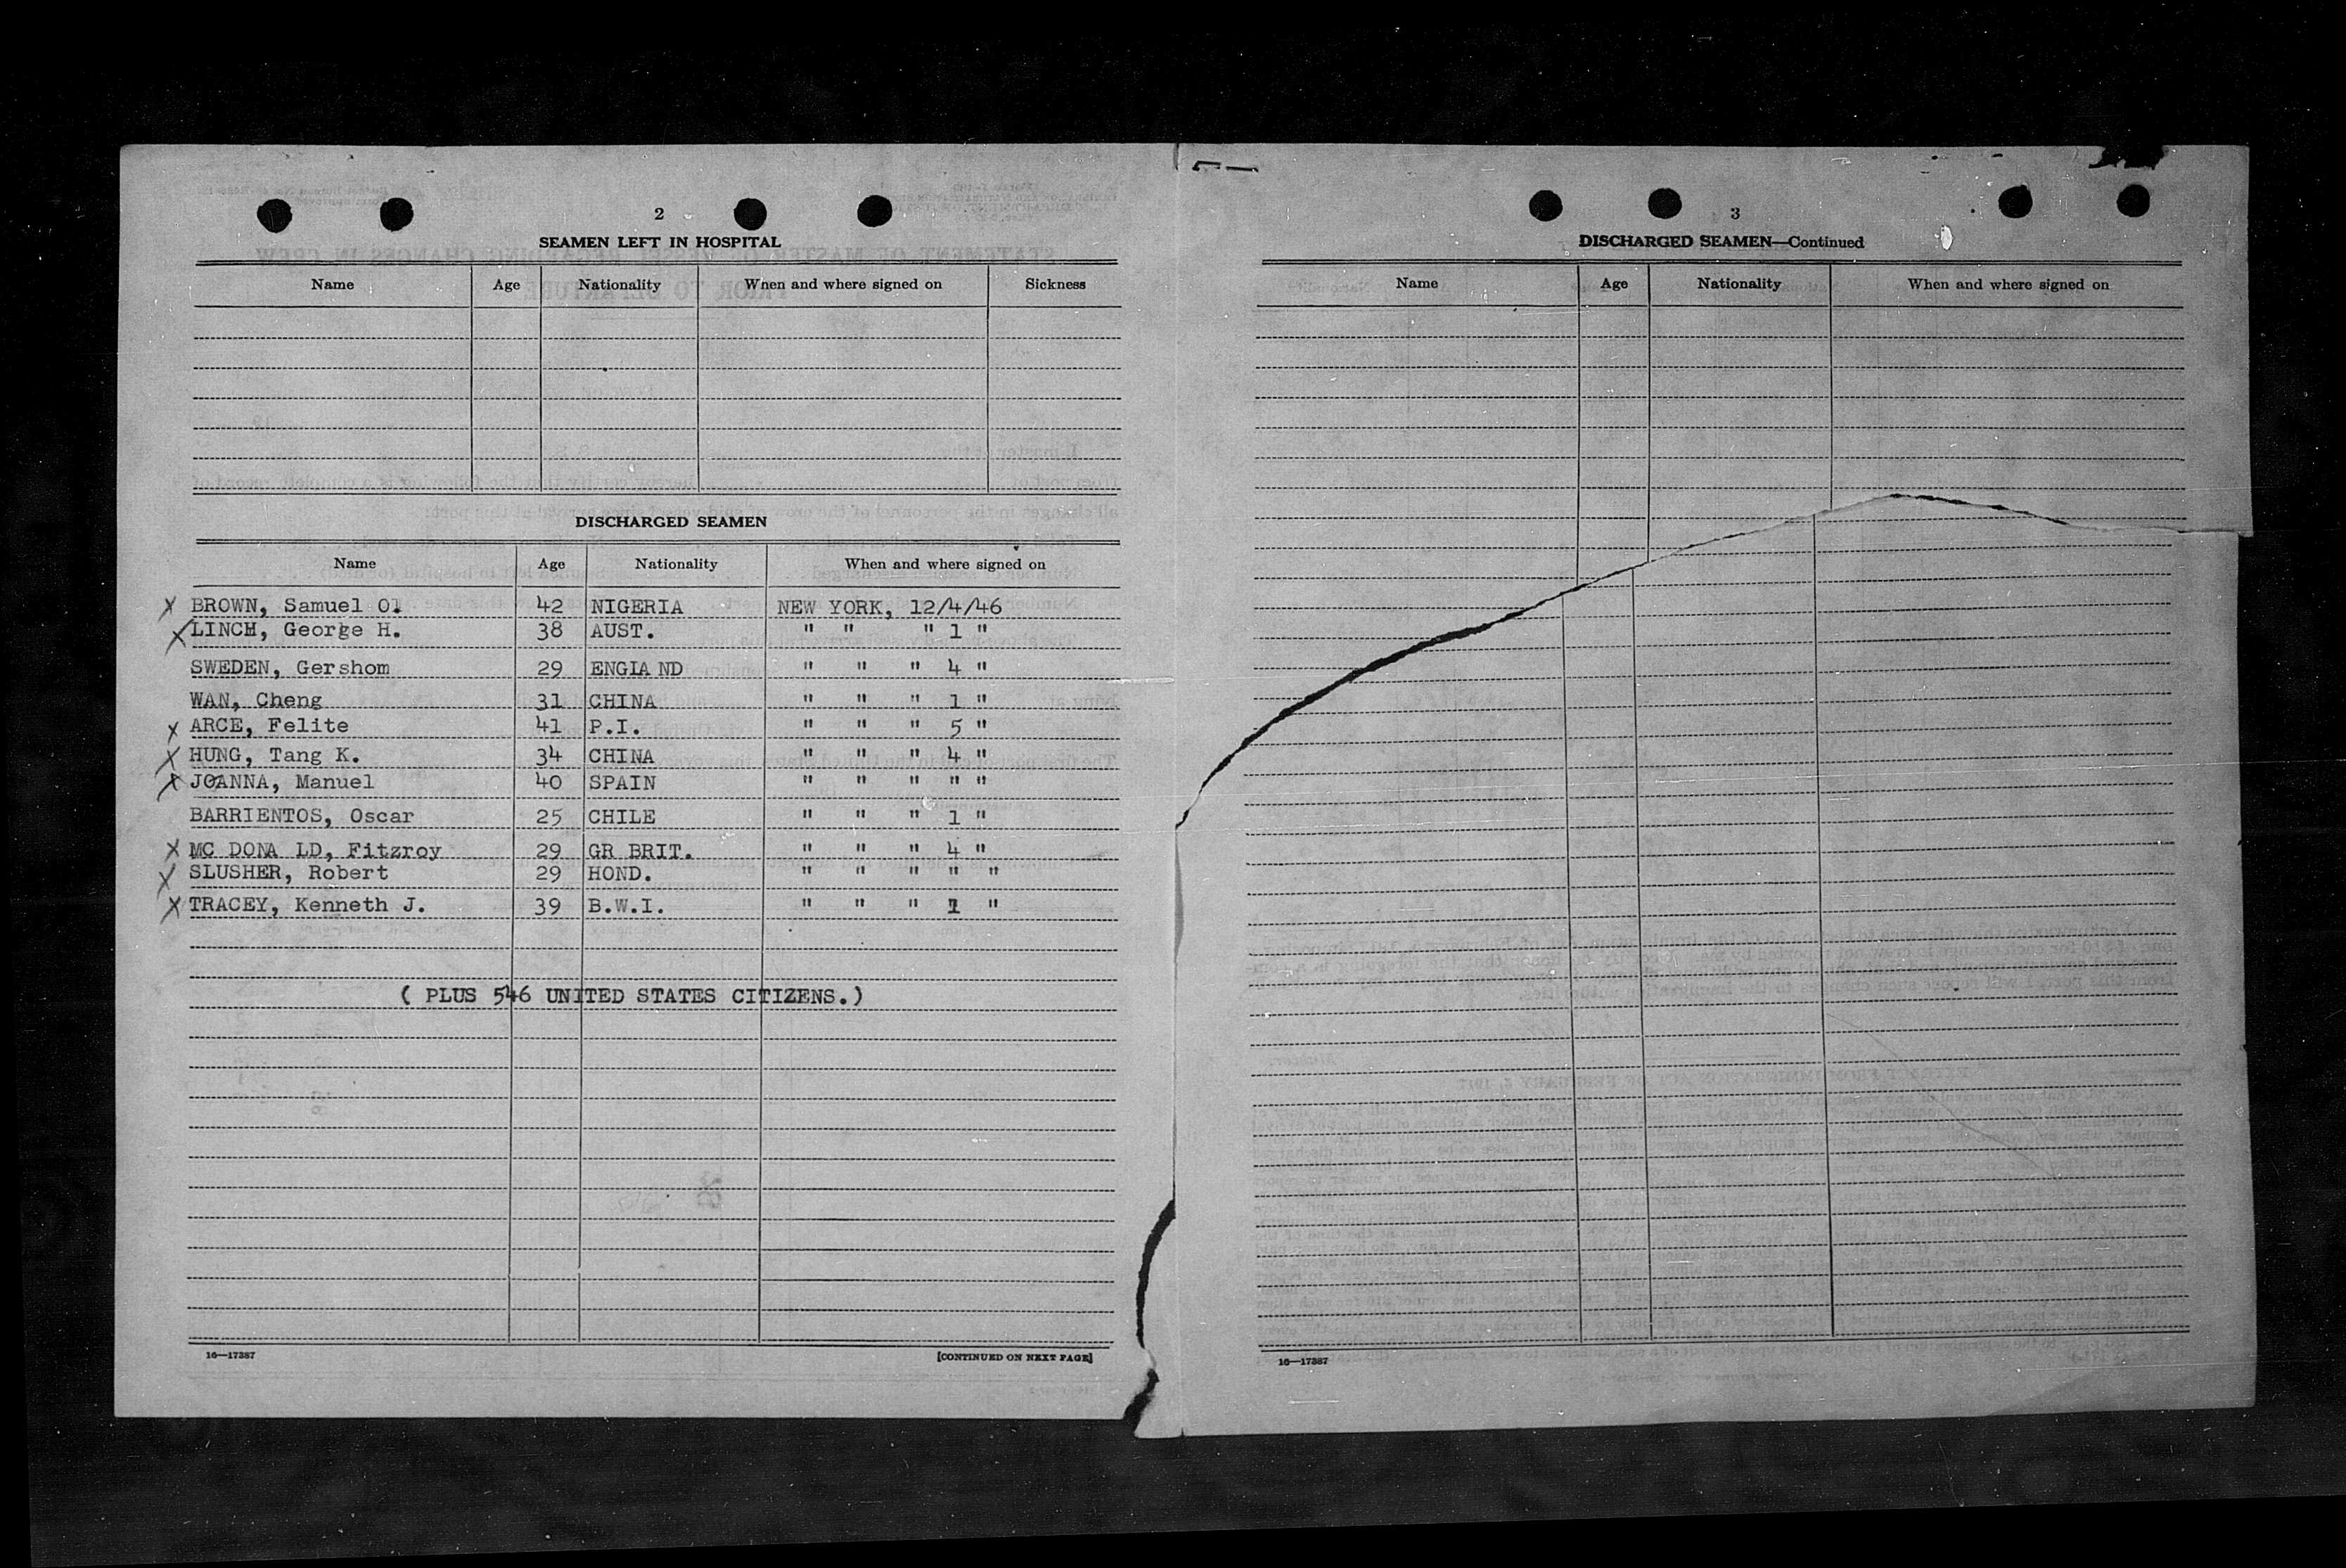 2
SEAMEN LEFT IN HOSPITAL
Name Age Nationality When and where signed on Sickness
DISCHARGED SEAMEN
Name Age Nationality When and where signed on
X BROWN, Samuel O. 42 NIGERIA NEW YORK, 12/4/46
X LINCH, George H. 38 AUST. " " " 1 "
SWEDEN, Gershom 29 ENGLA ND " " " 4 "
WAN, Cheng 31 CHINA " " " 1 "
X ARCE, Felite 41 P.I. " " " 5 "
X HUNG, Tang K. 34 CHINA " " " 4 "
X JOANNA, Manuel 40 SPAIN " " " " "
BARRIENTOS, Oscar 25 CHILE " " " 1 "
X MC DONA LD, Fitzroy 29 GR BRIT. " " " 4 "
X SLUSHER, Robert 29 HOND. " " " " "
X TRACEY, Kenneth J. 39 B.W.I. " " " 1 "
( PLUS 546 UNITED STATES CITIZENS.)
16—17387 [CONTINUED ON NEXT PAGE]
3
DISCHARGED SEAMEN—Continued
Name Age Nationality When and where signed on
16—17387